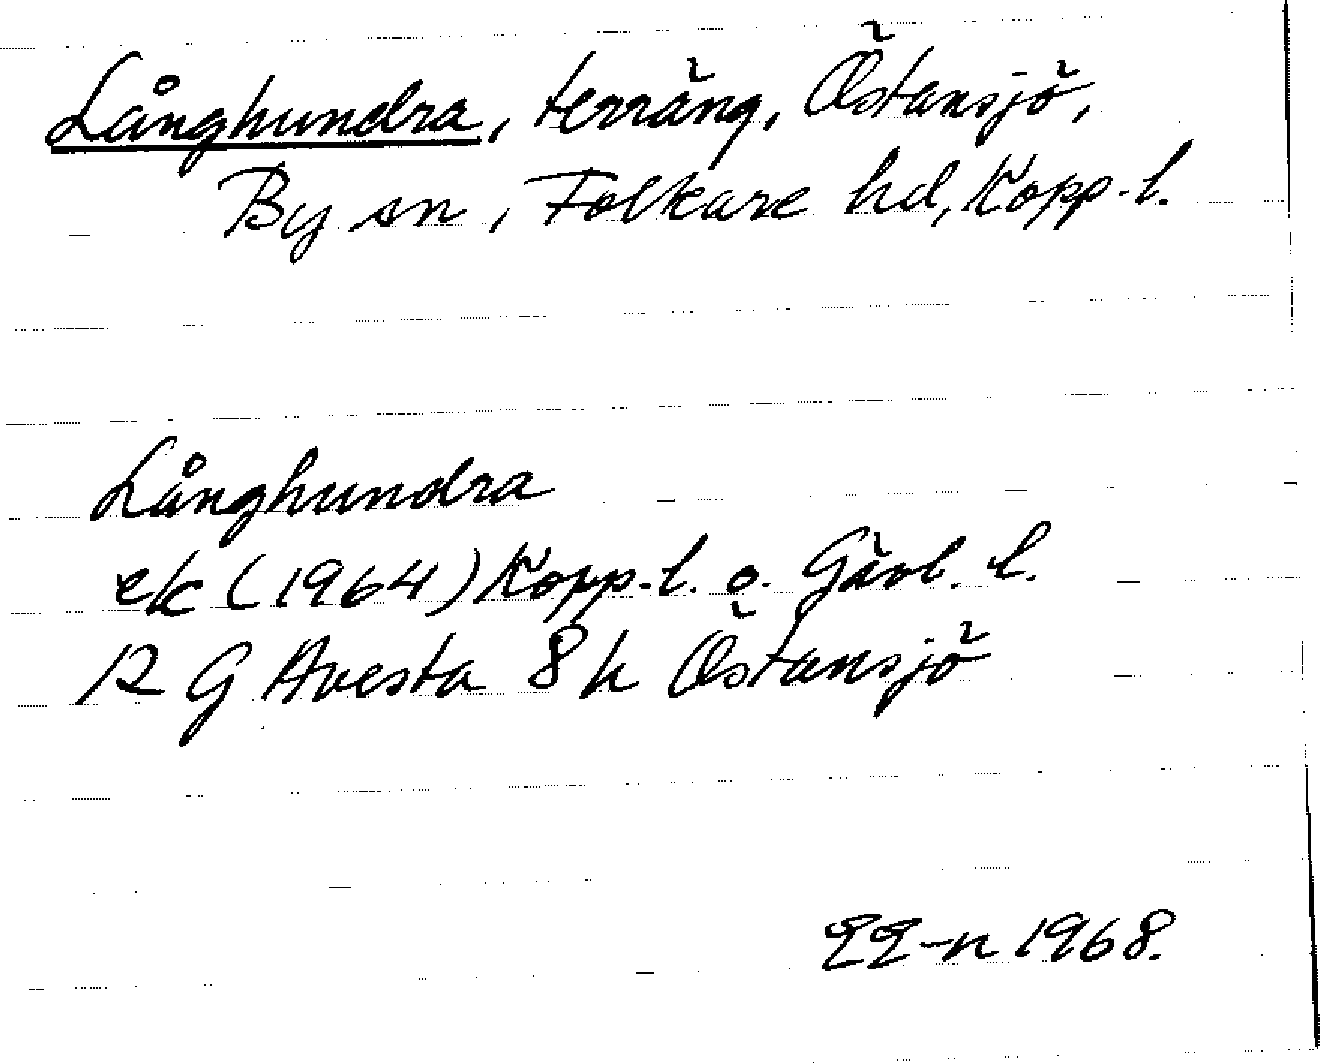 Långhundra, terräng, Östansjö,
By sn, Folkare hd, Kopp-l.
Långhundra
ek (1964) Kopp-l. o. Gävl. l.
12 G Avesta 8 h Östansjö
1968.